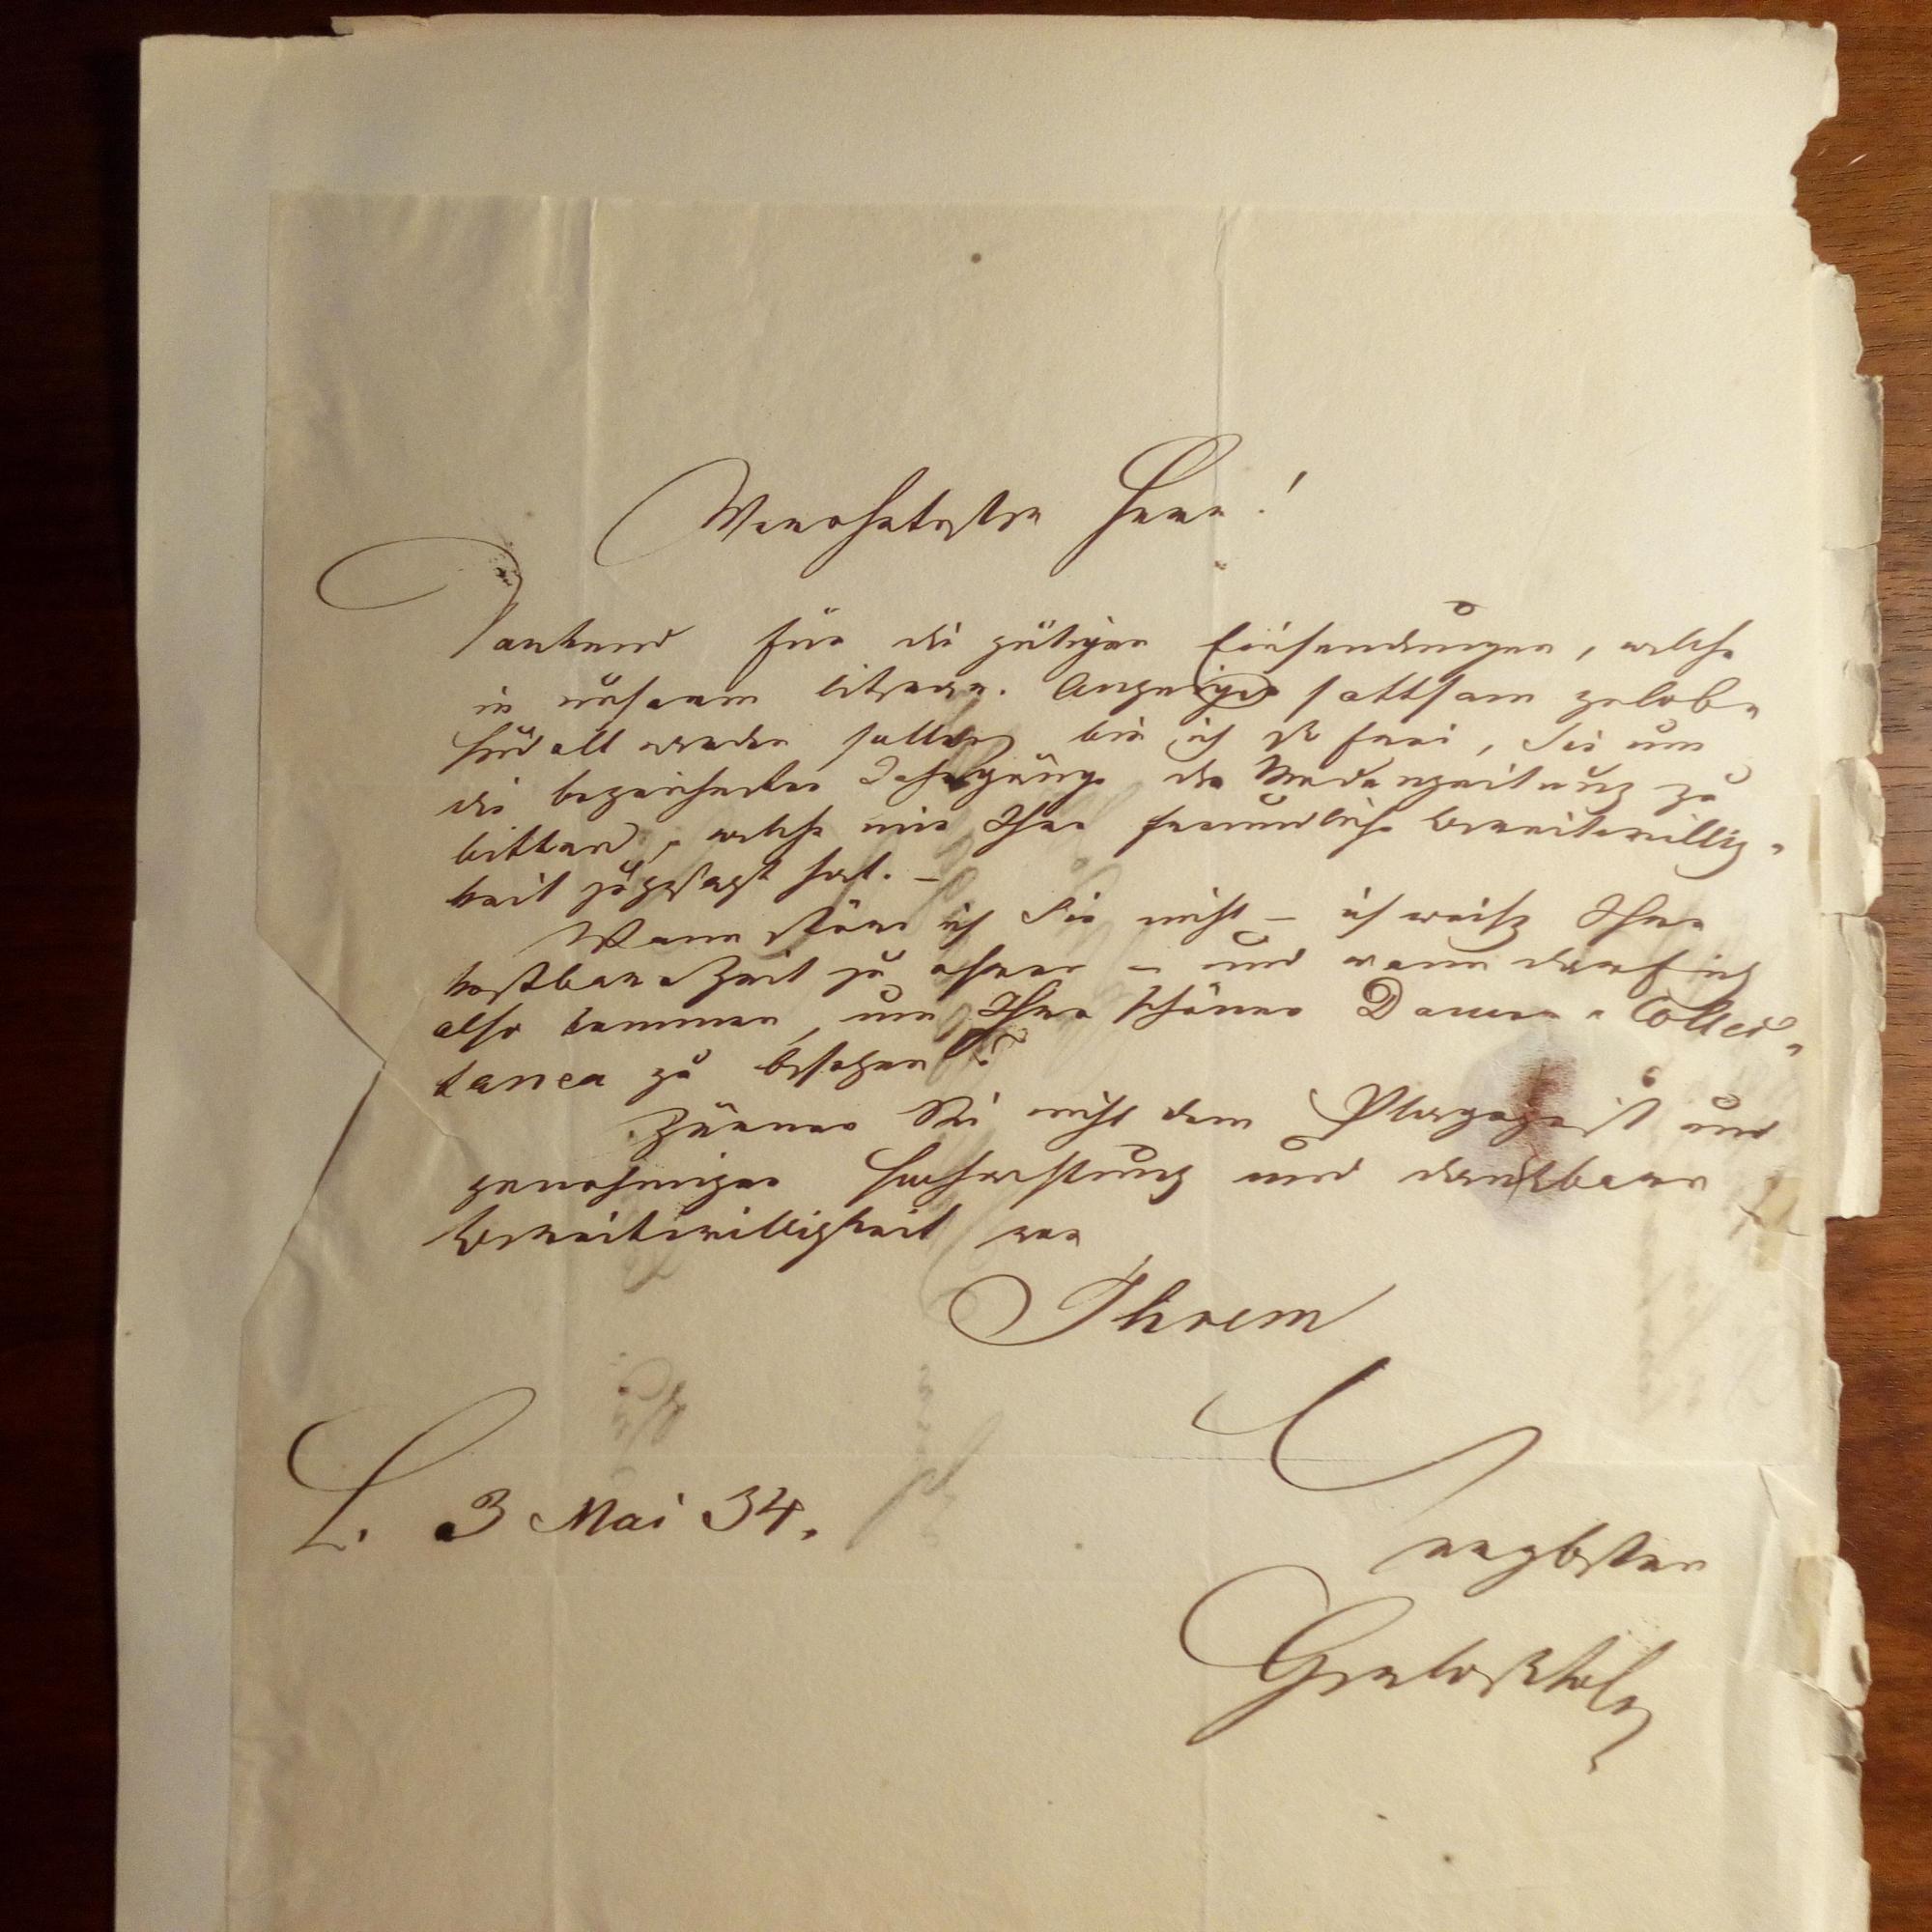 Verehrtester Herr!
Dankend für die gütigen Einsendungen, welche
in unserem literar. Anzeiger sattsam gelob-
hudelt werden sollen, bin ich so frei, Sie um
die bezeichneten Jahrgänge der Modenzeitung zu
bitten, welche mir Ihre freundliche Bereitwillig-
keit zugesagt hat. –
Wann störe ich Sie nicht – ich weiß Ihre
kostbare Zeit zu ehren – und wann darf ich
also kommen, um Ihre schönen Damen-Collec-
tanea zu besehen?
Zürnen Sie nicht dem Plagegeist und
genehmigen Hochachtung und dankbare
Bereitwilligkeit von
Ihrem
ergebsten
L. 3 Mai 34.